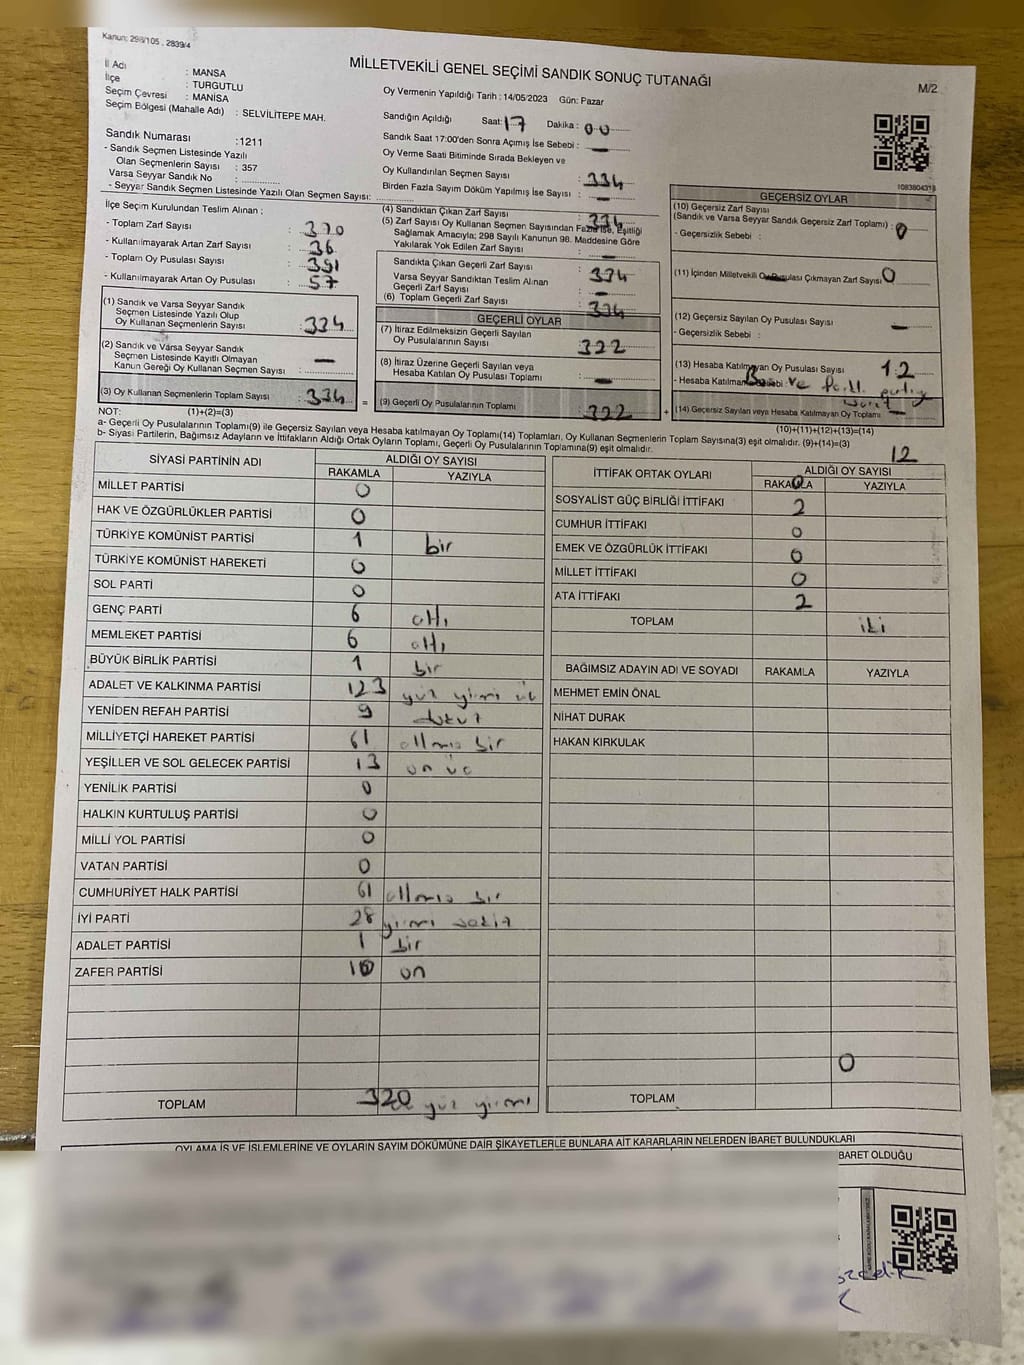 Kanun: 298/105 , 2839/4
MİLLETVEKİLİ GENEL SEÇİMİ SANDIK SONUÇ TUTANAĞI
M/2
İl Adı : MANSA
İlçe : TURGUTLU
Seçim Çevresi : MANİSA
Seçim Bölgesi (Mahalle Adı) : SELVİLİTEPE MAH.
Sandık Numarası : 1211
- Sandık Seçmen Listesinde Yazılı
Olan Seçmenlerin Sayısı : 357
Varsa Seyyar Sandık No :
- Seyyar Sandık Seçmen Listesinde Yazılı Olan Seçmen Sayısı:
Oy Vermenin Yapıldığı Tarih : 14/05/2023 Gün: Pazar
Sandığın Açıldığı Saat: 17 Dakika : 00
Sandık Saat 17:00'den Sonra Açımış İse Sebebi : —
Oy Verme Saati Bitiminde Sırada Bekleyen ve
Oy Kullandırılan Seçmen Sayısı : 334
Birden Fazla Sayım Döküm Yapılmış İse Sayısı : —
1083804315
İlçe Seçim Kurulundan Teslim Alınan :
- Toplam Zarf Sayısı : 370
- Kullanılmayarak Artan Zarf Sayısı : 36
- Toplam Oy Pusulası Sayısı : 391
- Kullanılmayarak Artan Oy Pusulası : 57
(1) Sandık ve Varsa Seyyar Sandık
Seçmen Listesinde Yazılı Olup
Oy Kullanan Seçmenlerin Sayısı : 334
(2) Sandık ve Varsa Seyyar Sandık
Seçmen Listesinde Kayıtlı Olmayan
Kanun Gereği Oy Kullanan Seçmen Sayısı : —
(3) Oy Kullanan Seçmenlerin Toplam Sayısı : 334 =
(4) Sandıktan Çıkan Zarf Sayısı : 334
(5) Zarf Sayısı Oy Kullanan Seçmen Sayısından Fazla İse, Eşitliği
Sağlamak Amacıyla; 298 Sayılı Kanunun 98. Maddesine Göre
Yakılarak Yok Edilen Zarf Sayısı : —
Sandıkta Çıkan Geçerli Zarf Sayısı : 334
Varsa Seyyar Sandıktan Teslim Alınan
Geçerli Zarf Sayısı : —
(6) Toplam Geçerli Zarf Sayısı : 334
GEÇERLİ OYLAR
(7) İtiraz Edilmeksizin Geçerli Sayılan
Oy Pusulalarının Sayısı : 322
(8) İtiraz Üzerine Geçerli Sayılan veya
Hesaba Katılan Oy Pusulası Toplamı : —
(9) Geçerli Oy Pusulalarının Toplamı : 322 +
GEÇERSİZ OYLAR
(10) Geçersiz Zarf Sayısı
(Sandık ve Varsa Seyyar Sandık Geçersiz Zarf Toplamı) : 0
- Geçersizlik Sebebi :
(11) İçinden Milletvekili Oy Pusulası Çıkmayan Zarf Sayısı 0
(12) Geçersiz Sayılan Oy Pusulası Sayısı —
- Geçersizlik Sebebi :
(13) Hesaba Katılmayan Oy Pusulası Sayısı 12
- Hesaba Katılmama Sebebi : ve
(14) Geçersiz Sayılan veya Hesaba Katılmayan Oy Toplamı —
NOT: (1)+(2)=(3)
(10)+(11)+(12)+(13)=(14)
a- Geçerli Oy Pusulalarının Toplamı(9) ile Geçersiz Sayılan veya Hesaba katılmayan Oy Toplamı(14) Toplamları, Oy Kullanan Seçmenlerin Toplam Sayısına(3) eşit olmalıdır. (9)+(14)=(3)
b- Siyasi Partilerin, Bağımsız Adayların ve İttifakların Aldığı Ortak Oyların Toplamı, Geçerli Oy Pusulalarının Toplamına(9) eşit olmalıdır.
12
SİYASİ PARTİNİN ADI ALDIĞI OY SAYISI
RAKAMLA YAZIYLA
MİLLET PARTİSİ 0
HAK VE ÖZGÜRLÜKLER PARTİSİ 0
TÜRKİYE KOMÜNİST PARTİSİ 1 bir
TÜRKİYE KOMÜNİST HAREKETİ 0
SOL PARTİ 0
GENÇ PARTİ 6 altı
MEMLEKET PARTİSİ 6 altı
BÜYÜK BİRLİK PARTİSİ 1 bir
ADALET VE KALKINMA PARTİSİ 123 yüz yirmi üç
YENİDEN REFAH PARTİSİ 9 dokuz
MİLLİYETÇİ HAREKET PARTİSİ 61 altmış bir
YEŞİLLER VE SOL GELECEK PARTİSİ 13 on üç
YENİLİK PARTİSİ 0
HALKIN KURTULUŞ PARTİSİ 0
MİLLİ YOL PARTİSİ 0
VATAN PARTİSİ 0
CUMHURİYET HALK PARTİSİ 61 altmış bir
İYİ PARTİ 28 yirmi sekiz
ADALET PARTİSİ 1 bir
ZAFER PARTİSİ 10 on
TOPLAM 320 yüz yirmi
İTTİFAK ORTAK OYLARI ALDIĞI OY SAYISI
RAKAMLA YAZIYLA
0
SOSYALİST GÜÇ BİRLİĞİ İTTİFAKI 2
CUMHUR İTTİFAKI 0
EMEK VE ÖZGÜRLÜK İTTİFAKI 0
MİLLET İTTİFAKI 0
ATA İTTİFAKI 2
TOPLAM iki
BAĞIMSIZ ADAYIN ADI VE SOYADI RAKAMLA YAZIYLA
MEHMET EMİN ÖNAL
NİHAT DURAK
HAKAN KIRKULAK
0
TOPLAM
OYLAMA İŞ VE İŞLEMLERİNE VE OYLARIN SAYIM DÖKÜMÜNE DAİR ŞİKAYETLERLE BUNLARA AİT KARARLARIN NELERDEN İBARET BULUNDUKLARI
İBARET OLDUĞU